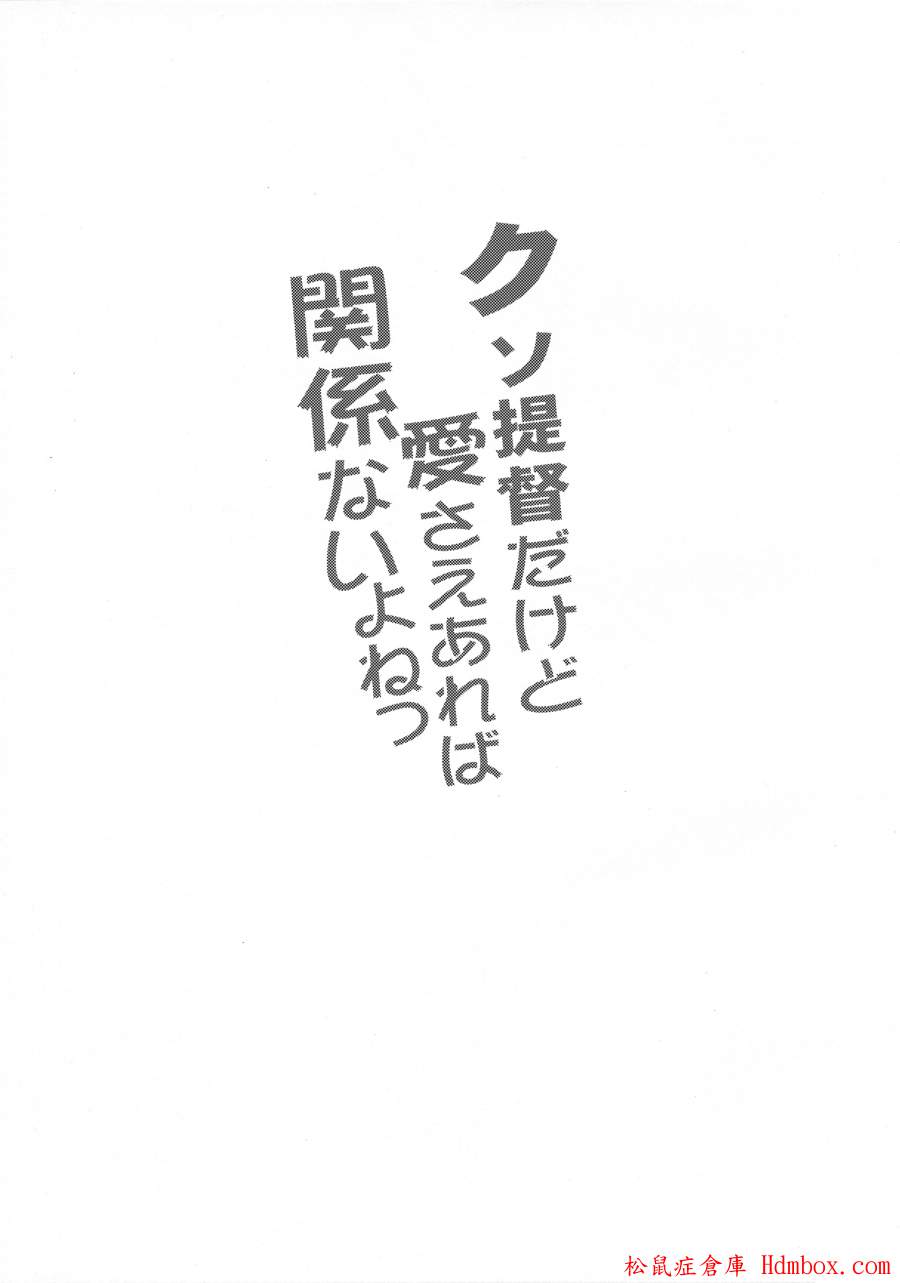 クソ提督だけど
愛さえあれば
関係ないよねっ
松鼠症倉庫 Hdmbox.com